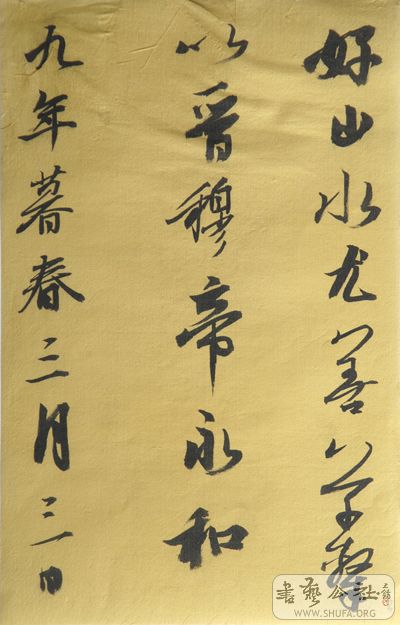 好山水尤善草隸
以晉穆帝永和
九年暮春三月三日
書藝公社
WWW.SHUFA.ORG